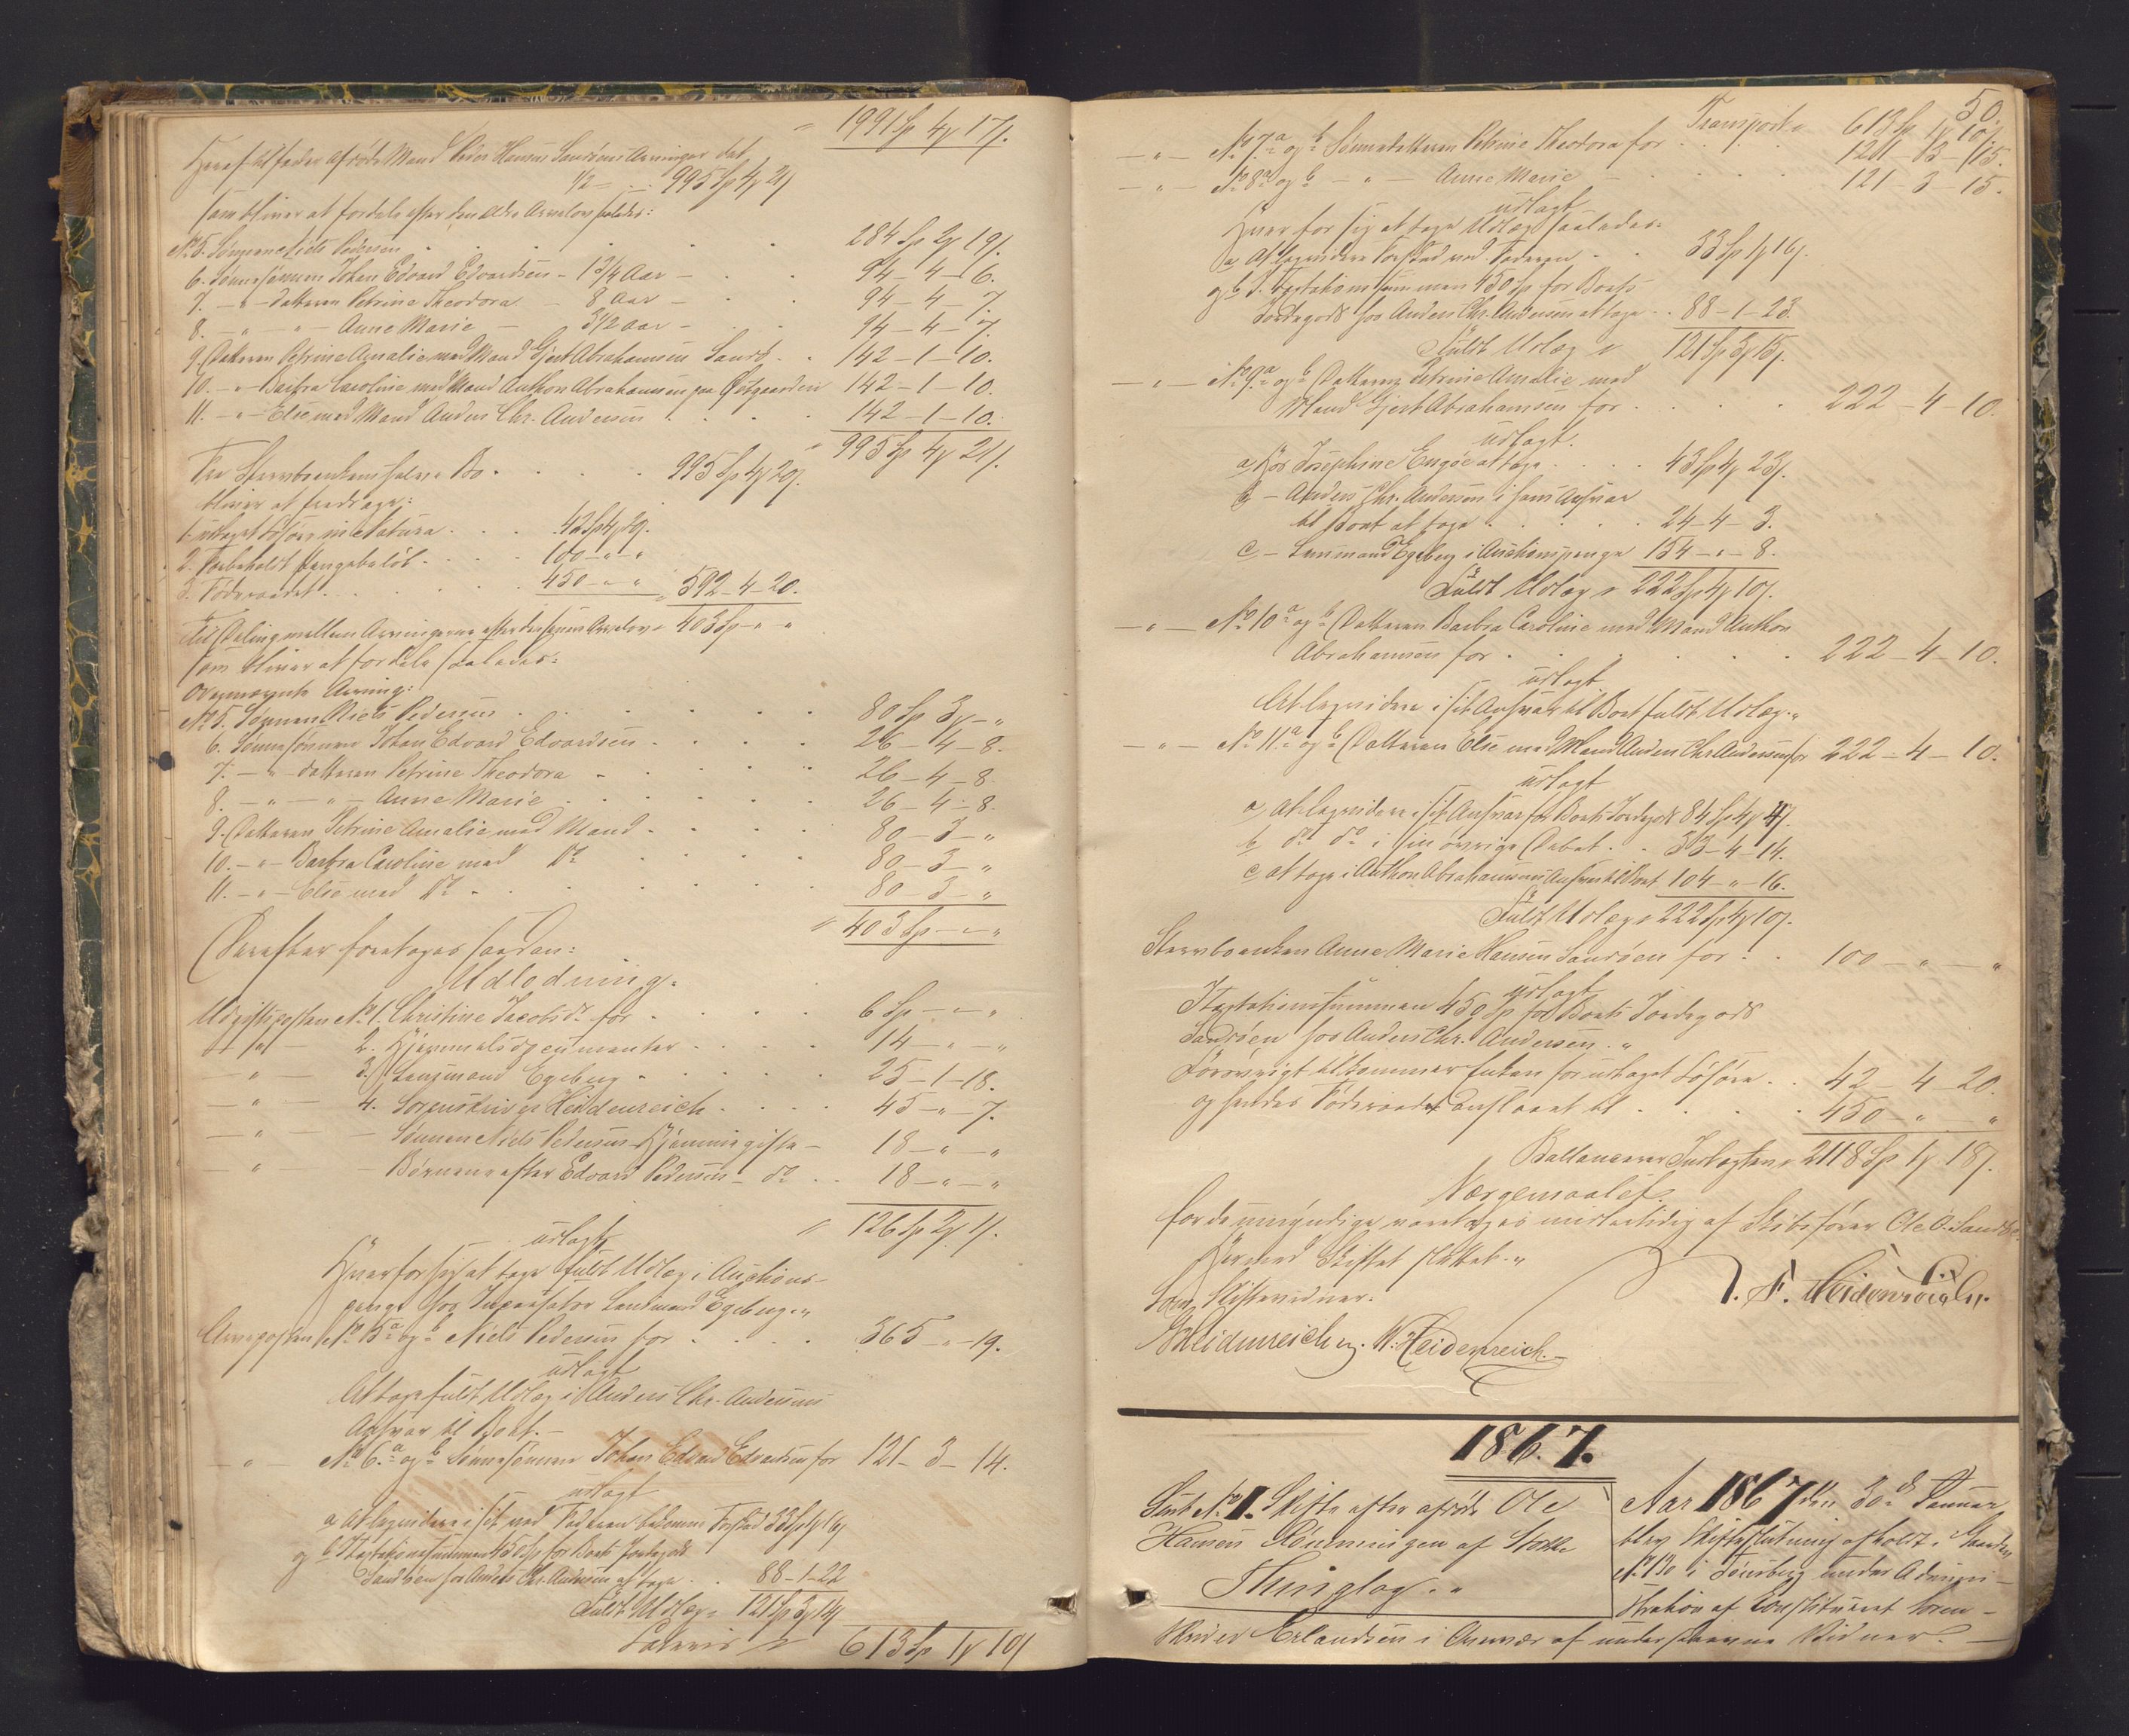 " 1991 Sp 4 ß 17 s.
Heraf tilfalder afdøde Mand Peder Hansen Sandøens Arvinger det
1/2 = 995 Sp 4 ß 21 s
som bliver at fordele efter den ældre Arvelov saaledes:
No 5. Sønnen Niels Pedersen . . . 284 Sp 2 ß 19 s.
6. Sønnesønnen Johan Edvard Edvardsen - 13/4 Aar - . 94 - 4 - 6.
7. - " - datteren Petrine Theodora - 8 Aar - . 94 - 4 - 7.
8. - " - " - Anne Marie - 3 1/2 Aar - . 94 - 4 - 7.
9. Datteren Petrine Amalie med Mand Gjert Abrahamsen Sandø . 142 - 1 - 10.
10. - " - Barbra Caroline med Mand Anthon Abrahamsen paa Østgaarden 142 - 1 - 10.
11. - " - Else med Mand Anders Chr. Andersen . . . 142 - 1 - 10.
" 995 Sp 4 ß 21 s.
Fra Stervboenkens halve Bo . . . 995 Sp 4 ß 20 s.
bliver at fradrage:
1. udtaget Løsøre in Natura . . . 42 Sp 4 ß 20.
2. Forbeholdt Pengebeløb . . . 100 - " - "
3. Føderaadet . . . 450 - " - " 592 - 4 - 20.
Til Deling mellem Arvingerne efter den senere Arvelov " 403 Sp - " - "
som bliver at fordele saaledes:
Ovennævnte Arving:
No 5. Sønnen Niels Pedersen . . . 80 Sp 3 ß - "
6. Sønnesønnen Johan Edvard Edvardsen . . . 26 - 4 - 8.
7. - " - datteren Petrine Theodora . . . 26 - 4 - 8.
8. - " - " - Anne Marie . . . 26 - 4 - 8.
9. Datteren Petrine Amalie med Mand . . . 80 - 3 - "
10. - " - Barbra Caroline med Do . . . 80 - 3 - "
11. - " - Else med Do . . . 80 - 3 - "
" 403 Sp - " - "
Derefter foretoges saadan:
Udlodning.
Udgiftsposten No 1. Christine Jacobsdr for . . . 6 Sp - " - "
- " - 2. Hjemmelsdocumenter . . . 14 - " - "
- " - 3. Lensmand Egeberg . . . 25 - 1 - 18.
- " - 4. Sorenskriver Heidenreich . . . 45 - " - 7.
- " - - Sønnen Niels Pedersens Hjemmegifte - 18 - " - "
- " - - Børnene efter Edvard Pedersen - do . . 18 - " - "
" 126 Sp 2 ß 1 s.
udlagt
Hver for sig at tage fuldt Udlæg i Auctions-
penge hos Incassator Lensmand Egeberg. "
Arveposten No 5 a og b Niels Pedersen for . . . 365 - " - 19.
udlagt
At tage fuldt Udlæg i Anders Chr. Andersens
Ansvar til Boet. -
- " - No 6. a og b Sønnesønnen Johan Edvard Edvardsen for 121 - 3 - 14.
udlagt
a At liqvidere i sit ved Faderen bekomne Forskud 33 Sp 1 ß 16 s
og b I Taxtationssummen 450 Sp for Boets Jordegods
Sandøen hos Anders Chr. Andersen at tage . . 88 - 1 - 22
Fuldt Udlæg " 121 Sp 3 ß 14 s
Lateris " 613 Sp 1 ß 10 s
50.
Transport " 613 Sp 1 ß 10 s.
- " - No 7. a og b Sønnedatteren Petrine Theodora for . . . 121 - 3 - 15.
- " - No 8 a og b - " - Anne Marie - . . . 121 - 3 - 15.
udlagt
Hver for sig at tage Udlæg saaledes:
a At liqvidere Forskud ved Faderen . . 33 Sp 1 ß 16 s.
og b I Taxtationssummen 450 Sp for Boets
Jordegods hos Anders Chr. Andersen at tage . . 88 - 1 - 23.
Fuldt Udlæg " 121 Sp 3 ß 15 s.
- " - No 9. a og b Datteren Petrine Amalie med
Mand Gjert Abrahamsen for . . . 222 - 4 - 10.
udlagt.
a Hos Josephine Engøe at tage . . . 43 Sp 4 ß 23 s.
b - Anders Chr. Andersen i hans Ansvar
til Boet at tage . . . 24 - 4 - 3.
c - Lensmand Egeberg i Auctionspenge 154 - " - 8.
Fuldt Udlæg " 222 Sp 4 ß 10 s.
- " - No 10 a og b Datteren Barbra Caroline med Mand Anthon
Abrahamsen for . . . 222 - 4 - 10.
udlagt
At liqvidere i sit Ansvar til Boet fuldt Udlæg. "
- " - No 11. a og b Datteren Else med Mand Anders Chr. Andersen for 222 - 4 - 10.
udlagt
a, At liqvidere i sit Ansvar for Boets Jordegods 84 Sp 4 ß 4 s.
b do do i sin øvrige Debet . . 33 - 4 - 14.
c at tage i Anthon Abrahamsens Ansvar til Boet 104 - " - 16.
Fuldt Udlæg " 222 Sp 4 ß 10 s.
Stervboenken Anne Marie Hansen Sandøen for . . 100 - " - "
udlagt
I Taxtationssummen 450 Sp for Boets Jordegods
Sandøen hos Anders Chr. Andersen. "
Forøvrigt tilkommer Enken for udtaget Løsøre . . 42 - 4 - 20.
og hendes Føderaad anslaaet til . . . 450 - " - "
Ballancerer Indtægten " 2118 Sp 1 ß 18 s.
Værgemaalet
for de umyndige varetages midlertidig af Skibsfører Ole O. Sandøe.
Hermed Skiftet sluttet. "
N. F. Heidenreich.
Som Skiftevidner:
Heidenreich m. N. Heidenreich. -
1867.
Sub No 1. Skifte efter afdøde Ole
Hansen Rønningen af Stokke
Thinglag. "
Aar 1867 den 30te Januar
blev Skifteslutning afholdt i Gaarden
No 130 i Tønsberg under Admini-
stration af Constitueret Soren-
skriver Erlandsen i Overvær af underskrevne Vidner. -